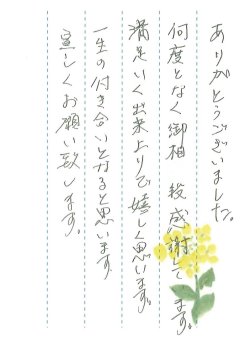 ありがとうございました。
何度となく御相 殺感謝して ます。
満足いく出来上りで嬉しく思います。
一生の付き合いとなると思います。
宜しくお願い致します。